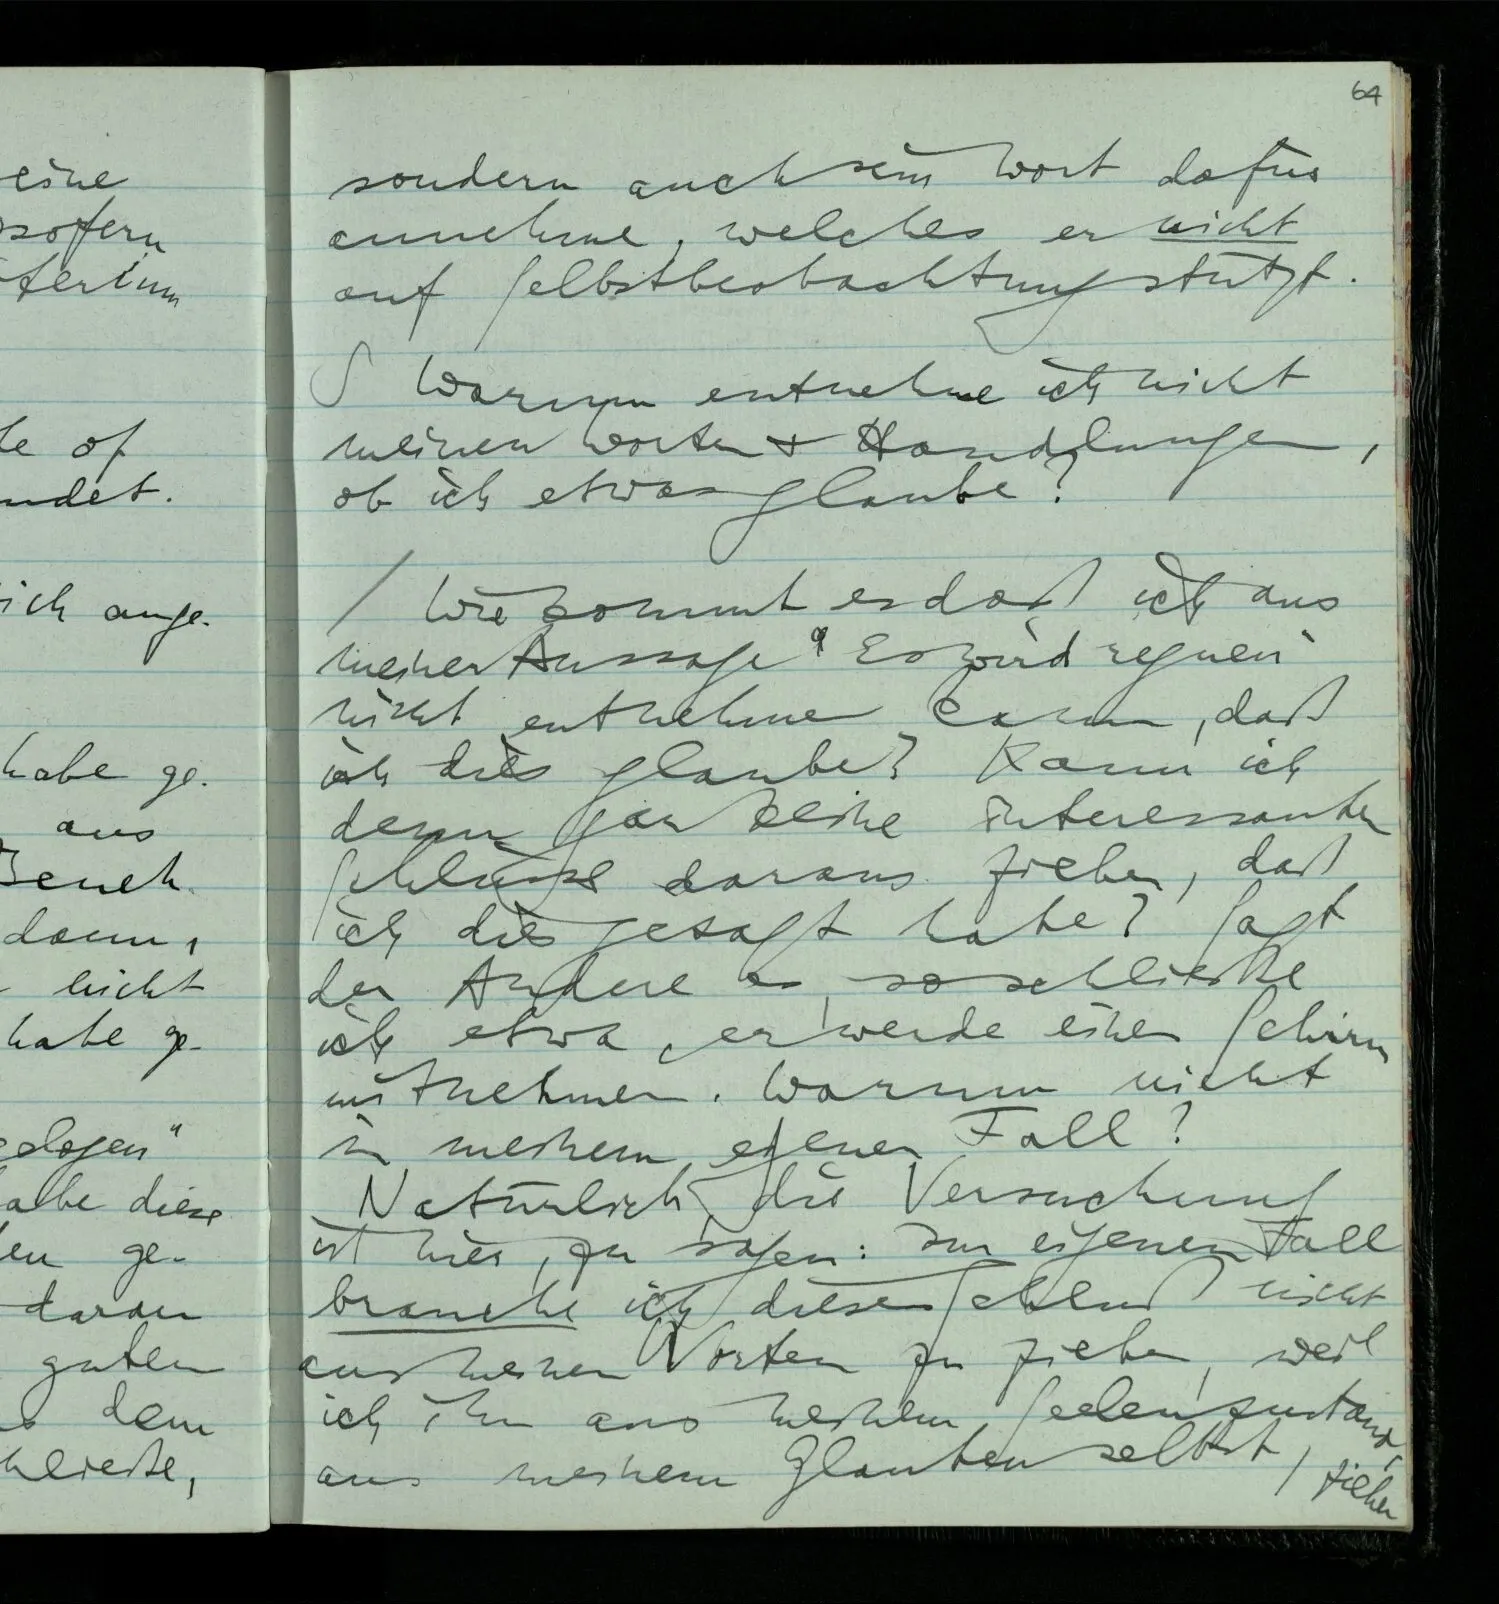 eine
osofern
iterium
te of
ndet.
ich ange-
habe ge-
aus
Beneh-
dann,
nicht
habe ge-
elogen"
habe diese
en ge-
daran
guten
dem
hließe,
64
sondern auch sein Wort dafür
annehme, welches er nicht
auf Selbstbeobachtung stützt.
S Warum entnehme ich nicht
meinen Worten + Handlungen,
ob ich etwas glaube?
/ Wie kommt es daß ich aus
meiner Aussage "Es wird regnen"
nicht entnehmen kann, daß
ich dies glaube? Kann ich
denn gar keine interessanten
Schlüsse daraus ziehen, daß
ich dies gesagt habe? Sagt
der Andere es, so schließe
ich etwa, er werde einen Schirm
mitnehmen. Warum nicht
in meinem eigenen Fall?
Natürlich, die Versuchung
ist hier, zu sagen: Im eigenen Fall
brauche ich diesen Schluß nicht
aus meinen Worten zu ziehen, weil
ich ihn aus meinem Seelenzustand,
aus meinem Glauben selbst, ziehen